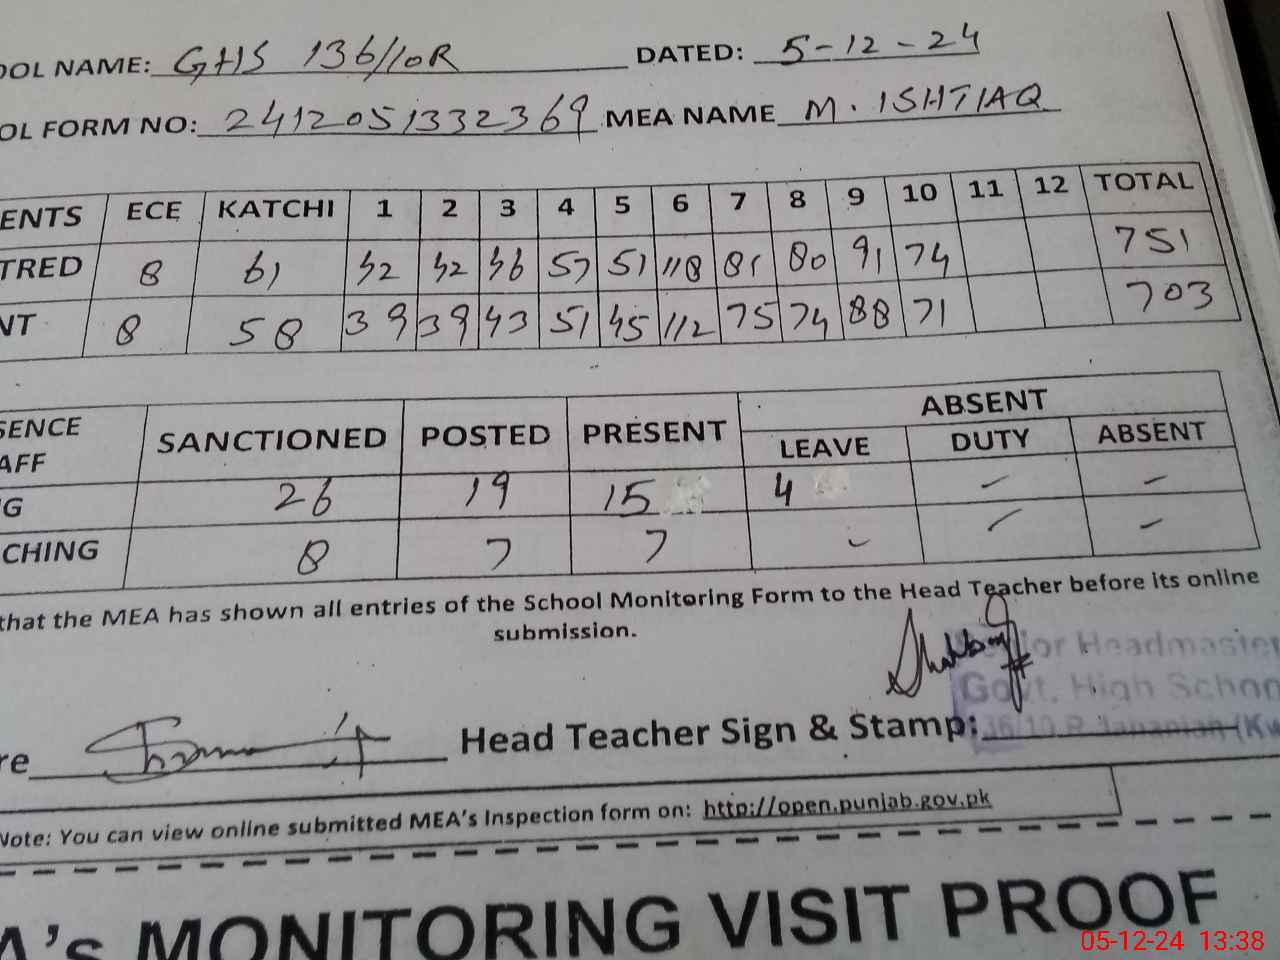 OOL NAME: GHS 136/10R DATED: 5-12-24
OL FORM NO: 2412051332369 MEA NAME M. ISHTIAQ
ENTS ECE KATCHI 1 2 3 4 5 6 7 8 9 10 11 12 TOTAL
TRED 8 61 42 42 46 57 51 118 81 80 91 74 751
NT 8 58 39 39 43 51 45 112 75 74 88 71 703
SENCE
AFF SANCTIONED POSTED PRESENT ABSENT
LEAVE DUTY ABSENT
G 26 19 15 4 - -
CHING 8 7 7 - - -
that the MEA has shown all entries of the School Monitoring Form to the Head Teacher before its online
submission.
ior Headmaster
Govt. High School
36/10.R Jananian (Kw
re Head Teacher Sign & Stamp:
Note: You can view online submitted MEA's Inspection form on: http://open.punjab.gov.pk
A's MONITORING VISIT PROOF
05-12-24 13:38